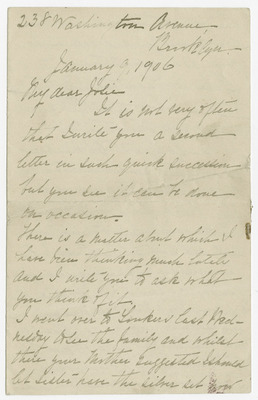 238 Washington Avenue
Brooklyn.
January 9, 1906
My dear Josie
It is not very often
that I write you a second
letter in such quick succession
but you see it can be done
on occasion.
There is a matter about which I
have been thinking much lately
and I write you to ask what
you think of it.
I went over to Yonkers last Wed-
nesday to see the family and whilst
there your Mother suggested I should
let Sister have the silver set